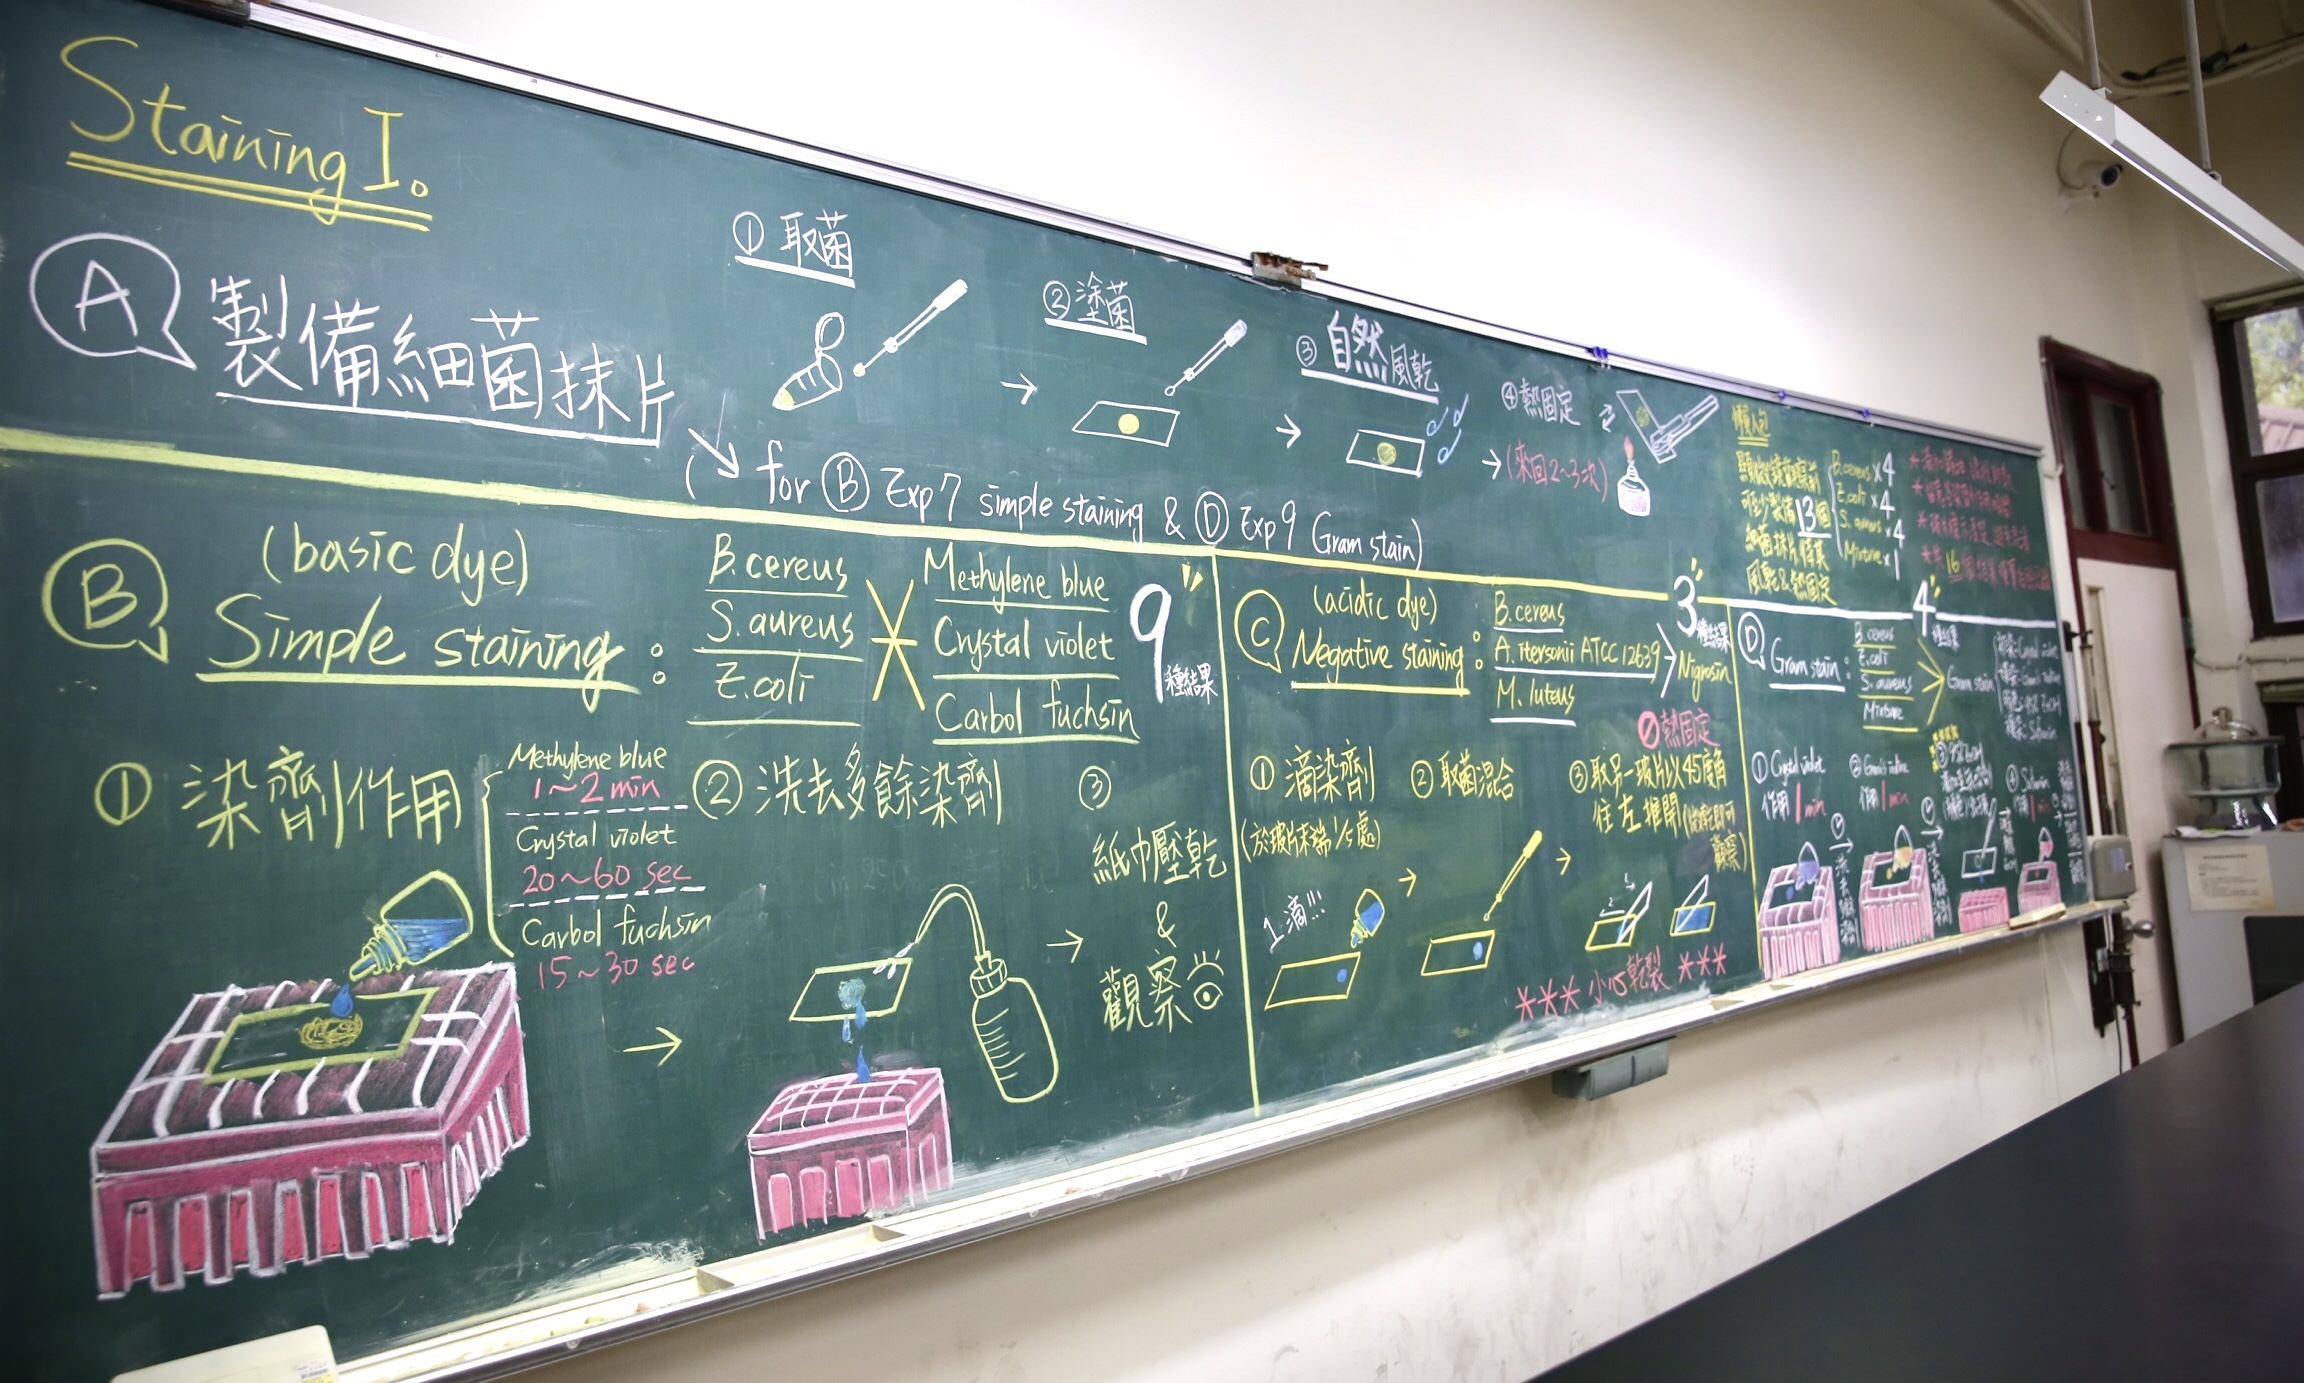 Staining I。
A 製備細菌抹片
① 取菌
② 塗菌
③ 自然風乾
④ 熱固定
(來回2~3次)
( for B Exp 7 simple staining & D Exp 9 Gram stain)
懶人包
顯微鏡觀察前
可少製備13個
細菌抹片待其
風乾&熱固定
B. cereus × 4
E. coli × 4
S. aureus × 4
Mixture × 1
B (basic dye)
Simple staining :
B. cereus
S. aureus
E. coli
Methylene blue
Crystal violet
Carbol fuchsin
9種結果
① 染劑作用
Methylene blue
1~2 min
Crystal violet
20~60 sec
Carbol fuchsin
15~30 sec
② 洗去多餘染劑
③
紙巾壓乾
&
觀察
C (acidic dye)
Negative staining :
B. cereus
A. itersonii ATCC 12639
M. luteus
Nigrosin
3種結果
熱固定
① 滴染劑
(於玻片末端1/5處)
1滴!!!
② 取菌混合
③ 取另一玻片以45度角
往左推開(
觀察)
*** 小心乾裂 ***
D Gram stain :
B. cereus
E. coli
S. aureus
Mixture
Gram stain
4種結果
① Crystal violet
作用 1 min
② Gram's iodine
作用 1 min
④ Safranin